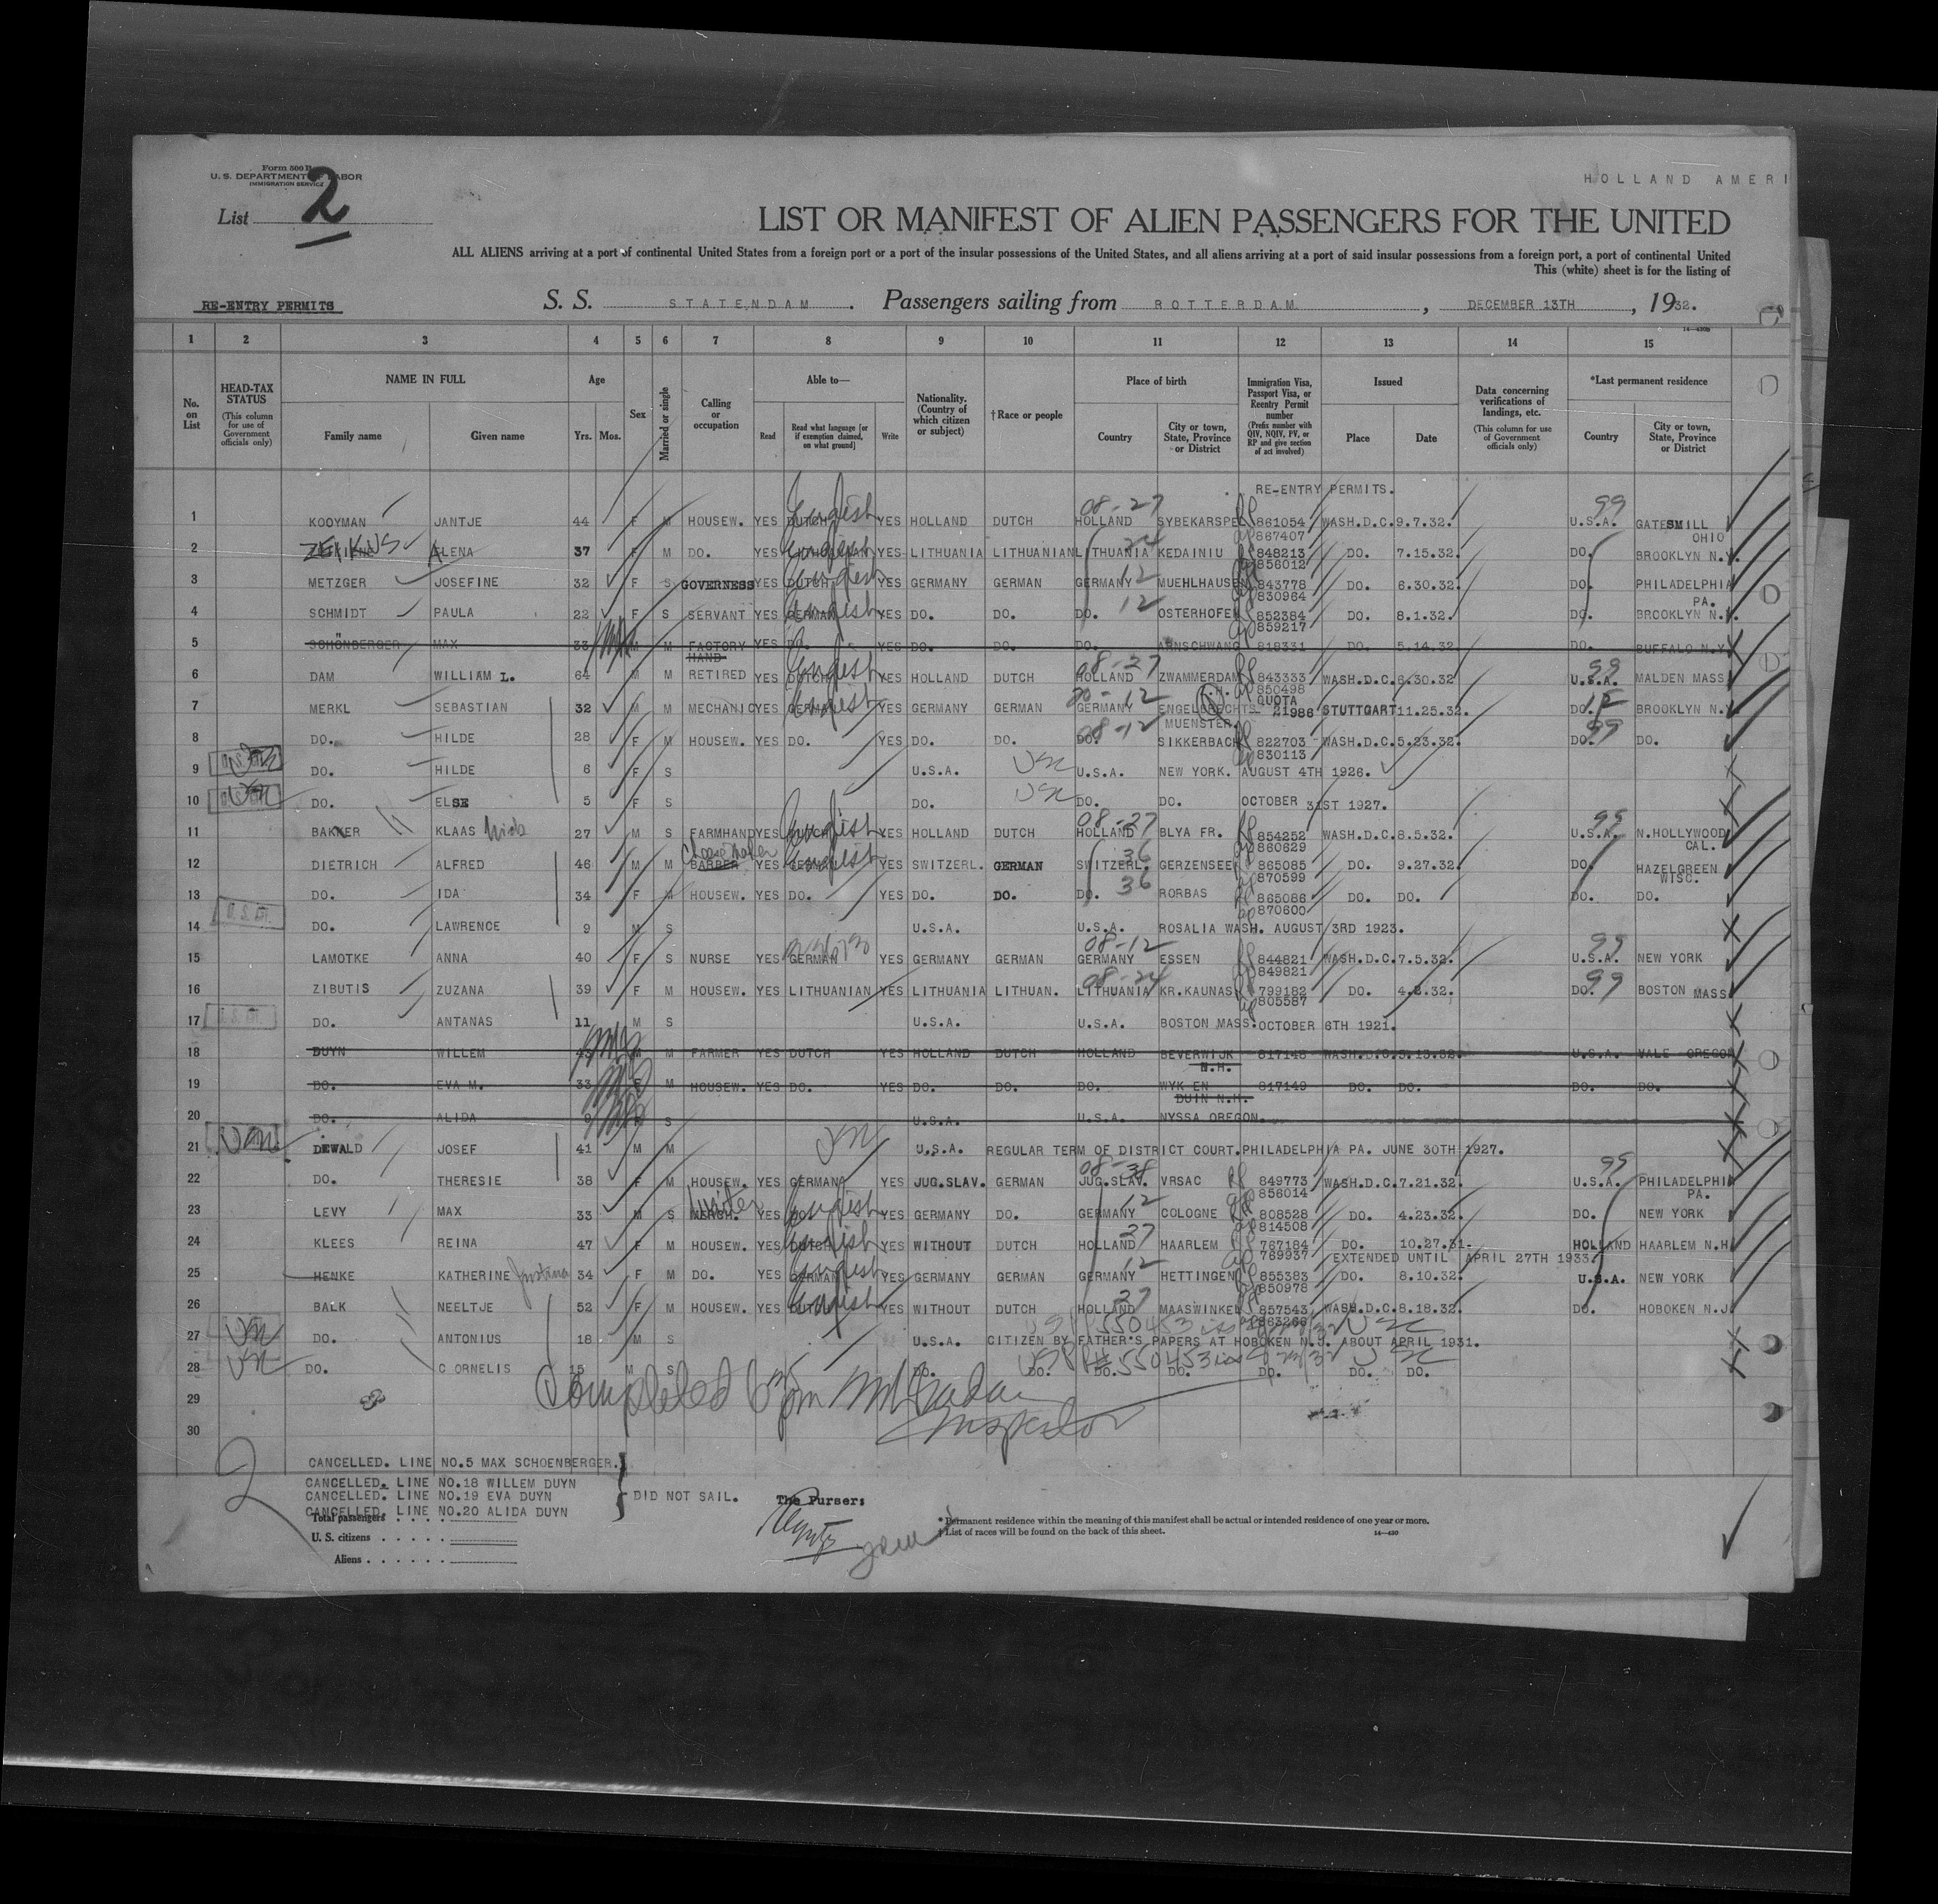 Form 500 B
U. S. DEPARTMENT OF LABOR
IMMIGRATION SERVICE
HOLLAND AMERI
List 2
LIST OR MANIFEST OF ALIEN PASSENGERS FOR THE UNITED
ALL ALIENS arriving at a port of continental United States from a foreign port or a port of the insular possessions of the United States, and all aliens arriving at a port of said insular possessions from a foreign port, a port of continental United
This (white) sheet is for the listing of
RE-ENTRY PERMITS S. S. STATENDAM. Passengers sailing from ROTTERDAM, DECEMBER 13TH, 1932.
1 2 3 4 5 6 7 8 9 10 11 12 13 14 15
No. on List
HEAD-TAX STATUS
(This column for use of Government officials only)
NAME IN FULL
Family name Given name
Age
Yrs. Mos.
Sex
Married or single
Calling or occupation
Able to—
Read Read what language [or if exemption claimed, on what ground] Write
Nationality. (Country of which citizen or subject)
†Race or people
Place of birth
Country City or town, State, Province or District
Immigration Visa, Passport Visa, or Reentry Permit number
(Prefix number with QIV, NQIV, PV, or RP and give section of act involved)
Issued
Place Date
Data concerning verifications of landings, etc.
(This column for use of Government officials only)
*Last permanent residence
Country City or town, State, Province or District
RE-ENTRY PERMITS.
1 KOOYMAN JANTJE 44 F M HOUSEW. YES DUTCH English YES HOLLAND DUTCH 08-27 HOLLAND SYBEKARSPEL 861054 WASH.D.C. 9.7.32. 99 U.S.A. GATESMILL OHIO
867407
2 ZEKIUS ALENA 37 F M DO. YES English YES LITHUANIA LITHUANIAN LITHUANIA 24 KEDAINIU 848213 DO. 7.15.32. DO. BROOKLYN N.Y.
856012
3 METZGER JOSEFINE 32 F S GOVERNESS YES DUTCH English YES GERMANY GERMAN GERMANY 12 MUEHLHAUSEN 843778 DO. 6.30.32. DO. PHILADELPHIA PA.
830964
4 SCHMIDT PAULA 22 F S SERVANT YES GERMAN English YES DO. DO. DO. 12 OSTERHOFEN 852384 DO. 8.1.32. DO. BROOKLYN N.Y.
859217
5 SCHÖNBERGER MAX 33 M M FACTORY HAND YES DO. YES DO. DO. DO. ARNSCHWANG 818331 DO. 5.14.32. DO. BUFFALO N.Y.
6 DAM WILLIAM L. 64 M M RETIRED YES DUTCH English YES HOLLAND DUTCH 08-27 HOLLAND ZWAMMERDAM 843333 WASH.D.C. 6.30.32 99 U.S.A. MALDEN MASS
850498
7 MERKL SEBASTIAN 32 M M MECHANIC YES GERMAN English YES GERMANY GERMAN 20-12 GERMANY ENGELBRECHTS MUENSTER. QUOTA 21986 STUTTGART 11.25.32. DO. BROOKLYN N.Y.
8 DO. HILDE 28 F M HOUSEW. YES DO. YES DO. DO. 08-12 DO. SIKKERBACH 822703 WASH.D.C. 5.23.32. 99 DO. DO.
830113
9 DO. HILDE 6 F S U.S.A. USC U.S.A. NEW YORK. AUGUST 4TH 1926.
10 DO. ELSE 5 F S DO. USC DO. DO. OCTOBER 31ST 1927.
11 BAKKER KLAAS 27 M S FARMHAND YES DUTCH English YES HOLLAND DUTCH 08-27 HOLLAND BLYA FR. 854252 WASH.D.C. 8.5.32. 99 U.S.A. N.HOLLYWOOD CAL.
860629
12 DIETRICH ALFRED 46 M M BARBER Cheese Maker YES GERMAN English YES SWITZERL. GERMAN SWITZERL. 36 GERZENSEE 865085 DO. 9.27.32. DO. HAZELGREEN WISC.
870599
13 DO. IDA 34 F M HOUSEW. YES DO. YES DO. DO. DO. 36 RORBAS 865086 DO. DO. DO. DO.
870600
14 DO. LAWRENCE 9 M S U.S.A. U.S.A. ROSALIA WASH. AUGUST 3RD 1923.
15 LAMOTKE ANNA 40 F S NURSE YES GERMAN YES GERMANY GERMAN 08-12 GERMANY ESSEN 844821 WASH.D.C. 7.5.32. 99 U.S.A. NEW YORK
849821
16 ZIBUTIS ZUZANA 39 F M HOUSEW. YES LITHUANIAN YES LITHUANIA LITHUAN. 08-24 LITHUANIA KR.KAUNAS 799182 DO. 4.8.32. 99 DO. BOSTON MASS
805587
17 DO. ANTANAS 11 M S U.S.A. U.S.A. BOSTON MASS. OCTOBER 6TH 1921.
18 DUYN WILLEM 43 M M FARMER YES DUTCH YES HOLLAND DUTCH HOLLAND BEVERWIJK N.H. 817148 WASH.D.C. 5.13.32. U.S.A. VALE OREGON
19 DO. EVA M. 33 F M HOUSEW. YES DO. YES DO. DO. DO. WYK EN DUIN N.H. 817149 DO. DO. DO. DO.
20 DO. ALIDA 9 F S U.S.A. U.S.A. NYSSA OREGON.
21 DEWALD JOSEF 41 M M U.S.A. REGULAR TERM OF DISTRICT COURT.PHILADELPHIA PA. JUNE 30TH 1927.
22 DO. THERESIE 38 F M HOUSEW. YES GERMAN YES JUG.SLAV. GERMAN 08-38 JUG.SLAV. VRSAC 849773 WASH.D.C. 7.21.32. 99 U.S.A. PHILADELPHIA PA.
856014
23 LEVY MAX 33 M S MERCH. Waiter YES DO. English YES GERMANY DO. GERMANY 12 COLOGNE 808528 DO. 4.23.32. DO. NEW YORK
814508
24 KLEES REINA 47 F M HOUSEW. YES DUTCH English YES WITHOUT DUTCH HOLLAND 27 HAARLEM 767184 DO. 10.27.31- HOLLAND HAARLEM N.H.
769937 EXTENDED UNTIL APRIL 27TH 1933.
25 HENKE KATHERINE 34 F M DO. YES GERMAN English YES GERMANY GERMAN GERMANY 12 HETTINGEN 855383 DO. 8.10.32. U.S.A. NEW YORK
850978
26 BALK NEELTJE 52 F M HOUSEW. YES DUTCH English YES WITHOUT DUTCH HOLLAND 27 MAASWINKEL 857543 WASH.D.C. 8.18.32. DO. HOBOKEN N.J.
27 DO. ANTONIUS 18 M S U.S.A. CITIZEN BY FATHER'S PAPERS AT HOBOKEN N.J. ABOUT APRIL 1931.
28 DO. CORNELIS 15 M S DO. DO. DO. DO. DO. DO. DO.
29 Completed
30 Inspector
CANCELLED. LINE NO.5 MAX SCHOENBERGER.
CANCELLED. LINE NO.18 WILLEM DUYN
CANCELLED. LINE NO.19 EVA DUYN DID NOT SAIL. The Purser:
CANCELLED. LINE NO.20 ALIDA DUYN
Total passengers
U. S. citizens
Aliens
2
* Permanent residence within the meaning of this manifest shall be actual or intended residence of one year or more.
† List of races will be found on the back of this sheet. 14—430